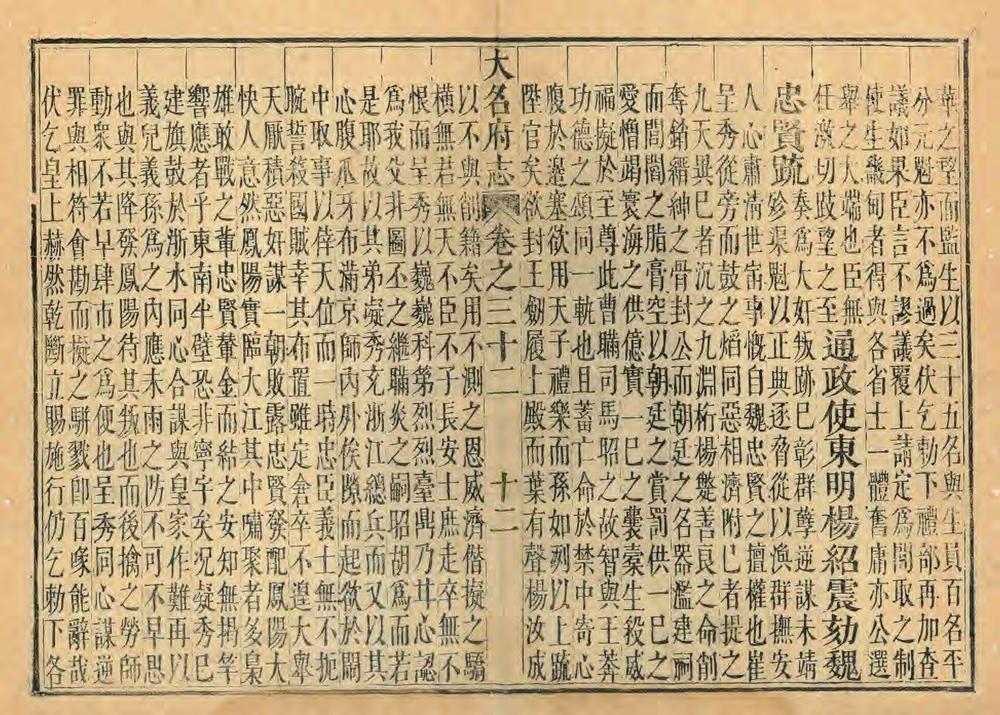 華之望而監生以三十五名與生員百名平
分元魁亦不爲過矣伏乞勅下禮部再加查
議如果臣言不謬議覆上請定爲間取之制
使生畿甸者得與各省士一體奮庸亦公選
舉之大端也臣無
任激切跂望之至
通政使東明楊紹震劾魏
忠賢疏
奏爲大奸叛跡已彰群孽逆謀未靖
殄渠魁以正典逐脅從以渙群撫安
人心肅清世宙事慨自魏忠賢之擅權也崔
呈秀從旁而鼓之熖同惡相濟附巳者提之
九天異巳者沉之九淵桁楊斃善良之命創
奪銷縉紳之骨封公而朝廷之名器濫建祠
而閭閻之脂膏空以朝廷之賞罰供一巳之
愛憎竭寰海之供億實一巳之囊橐生殺威
福擬於至尊此曹瞞司馬昭之故智與王莽
功德之頌同一軌也且蓄亡命於禁中寄心
腹於邊塞欲用天子禮樂而孫如冽以上疏
陞官矣欲封王劒履上殿而葉有聲楊汝成
大名府志 卷之三十二 十二
以不與削籍矣用不測之恩威濟僭擬之驕
橫無君無天不臣不子長安士庶走卒無不
恨而呈秀以巍巍科第烈烈臺鼎乃甘心認
爲我父非圖丕之繼瞞炎之嗣昭胡爲而若
是耶故以其弟凝秀充浙江總兵而又以其
心腹爪牙布滿京師內外俟隙而起欲於閫
中取事以倖天位而一時忠臣義士無不扼
腕誓殺國賊幸其布置雖定倉卒不遑大舉
天厭積惡奸謀一朝敗露忠賢發配鳳陽大
快人意然鳳陽實臨大江其中嘯聚者多梟
雄敢戰之董忠賢輦金而結之安知無揭竿
響應者乎東南半壁恐非寧宇矣况凝秀已
建旗鼓於浙水同心合謀與皇家作難再以
義兒義孫爲之內應未雨之防不可不早思
也與其降發鳳陽待其叛也而後擒之勞師
動衆不若早肆市之爲便也呈秀同心謀逆
罪與相符會勘而擬之駢戮卽百喙能辭哉
伏乞皇上赫然乾斷立賜施行仍乞勅下各